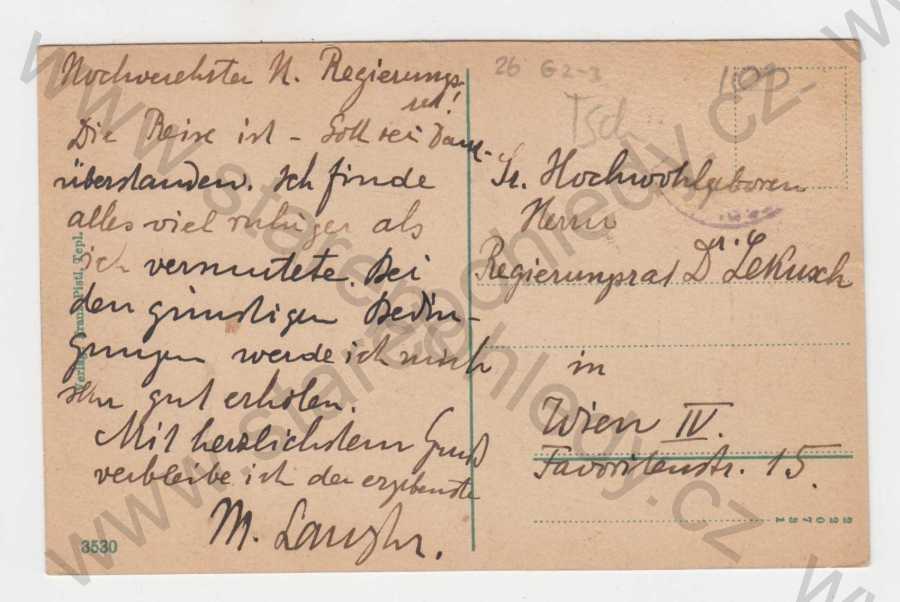 Hochverehrter H. Regierungs-
rat!
Die Reise ist – Gott sei Dank –
überstanden. Ich finde
alles viel ruhiger als
ich vermutete. Bei
den günstigen Bedin-
gungen werde ich mich
sehr gut erholen.
Mit herzlichstem Gruß
verbleibe ich der ergebenste
M.
3530
Verlag Frank Pistl, Tepl.
26 G2-3
Tsch
Sr. Hochwohlgeboren
Herrn
Regierungsrat Dr.
in
Wien IV.
Favoritenstr. 15.
www.starepohledy.cz